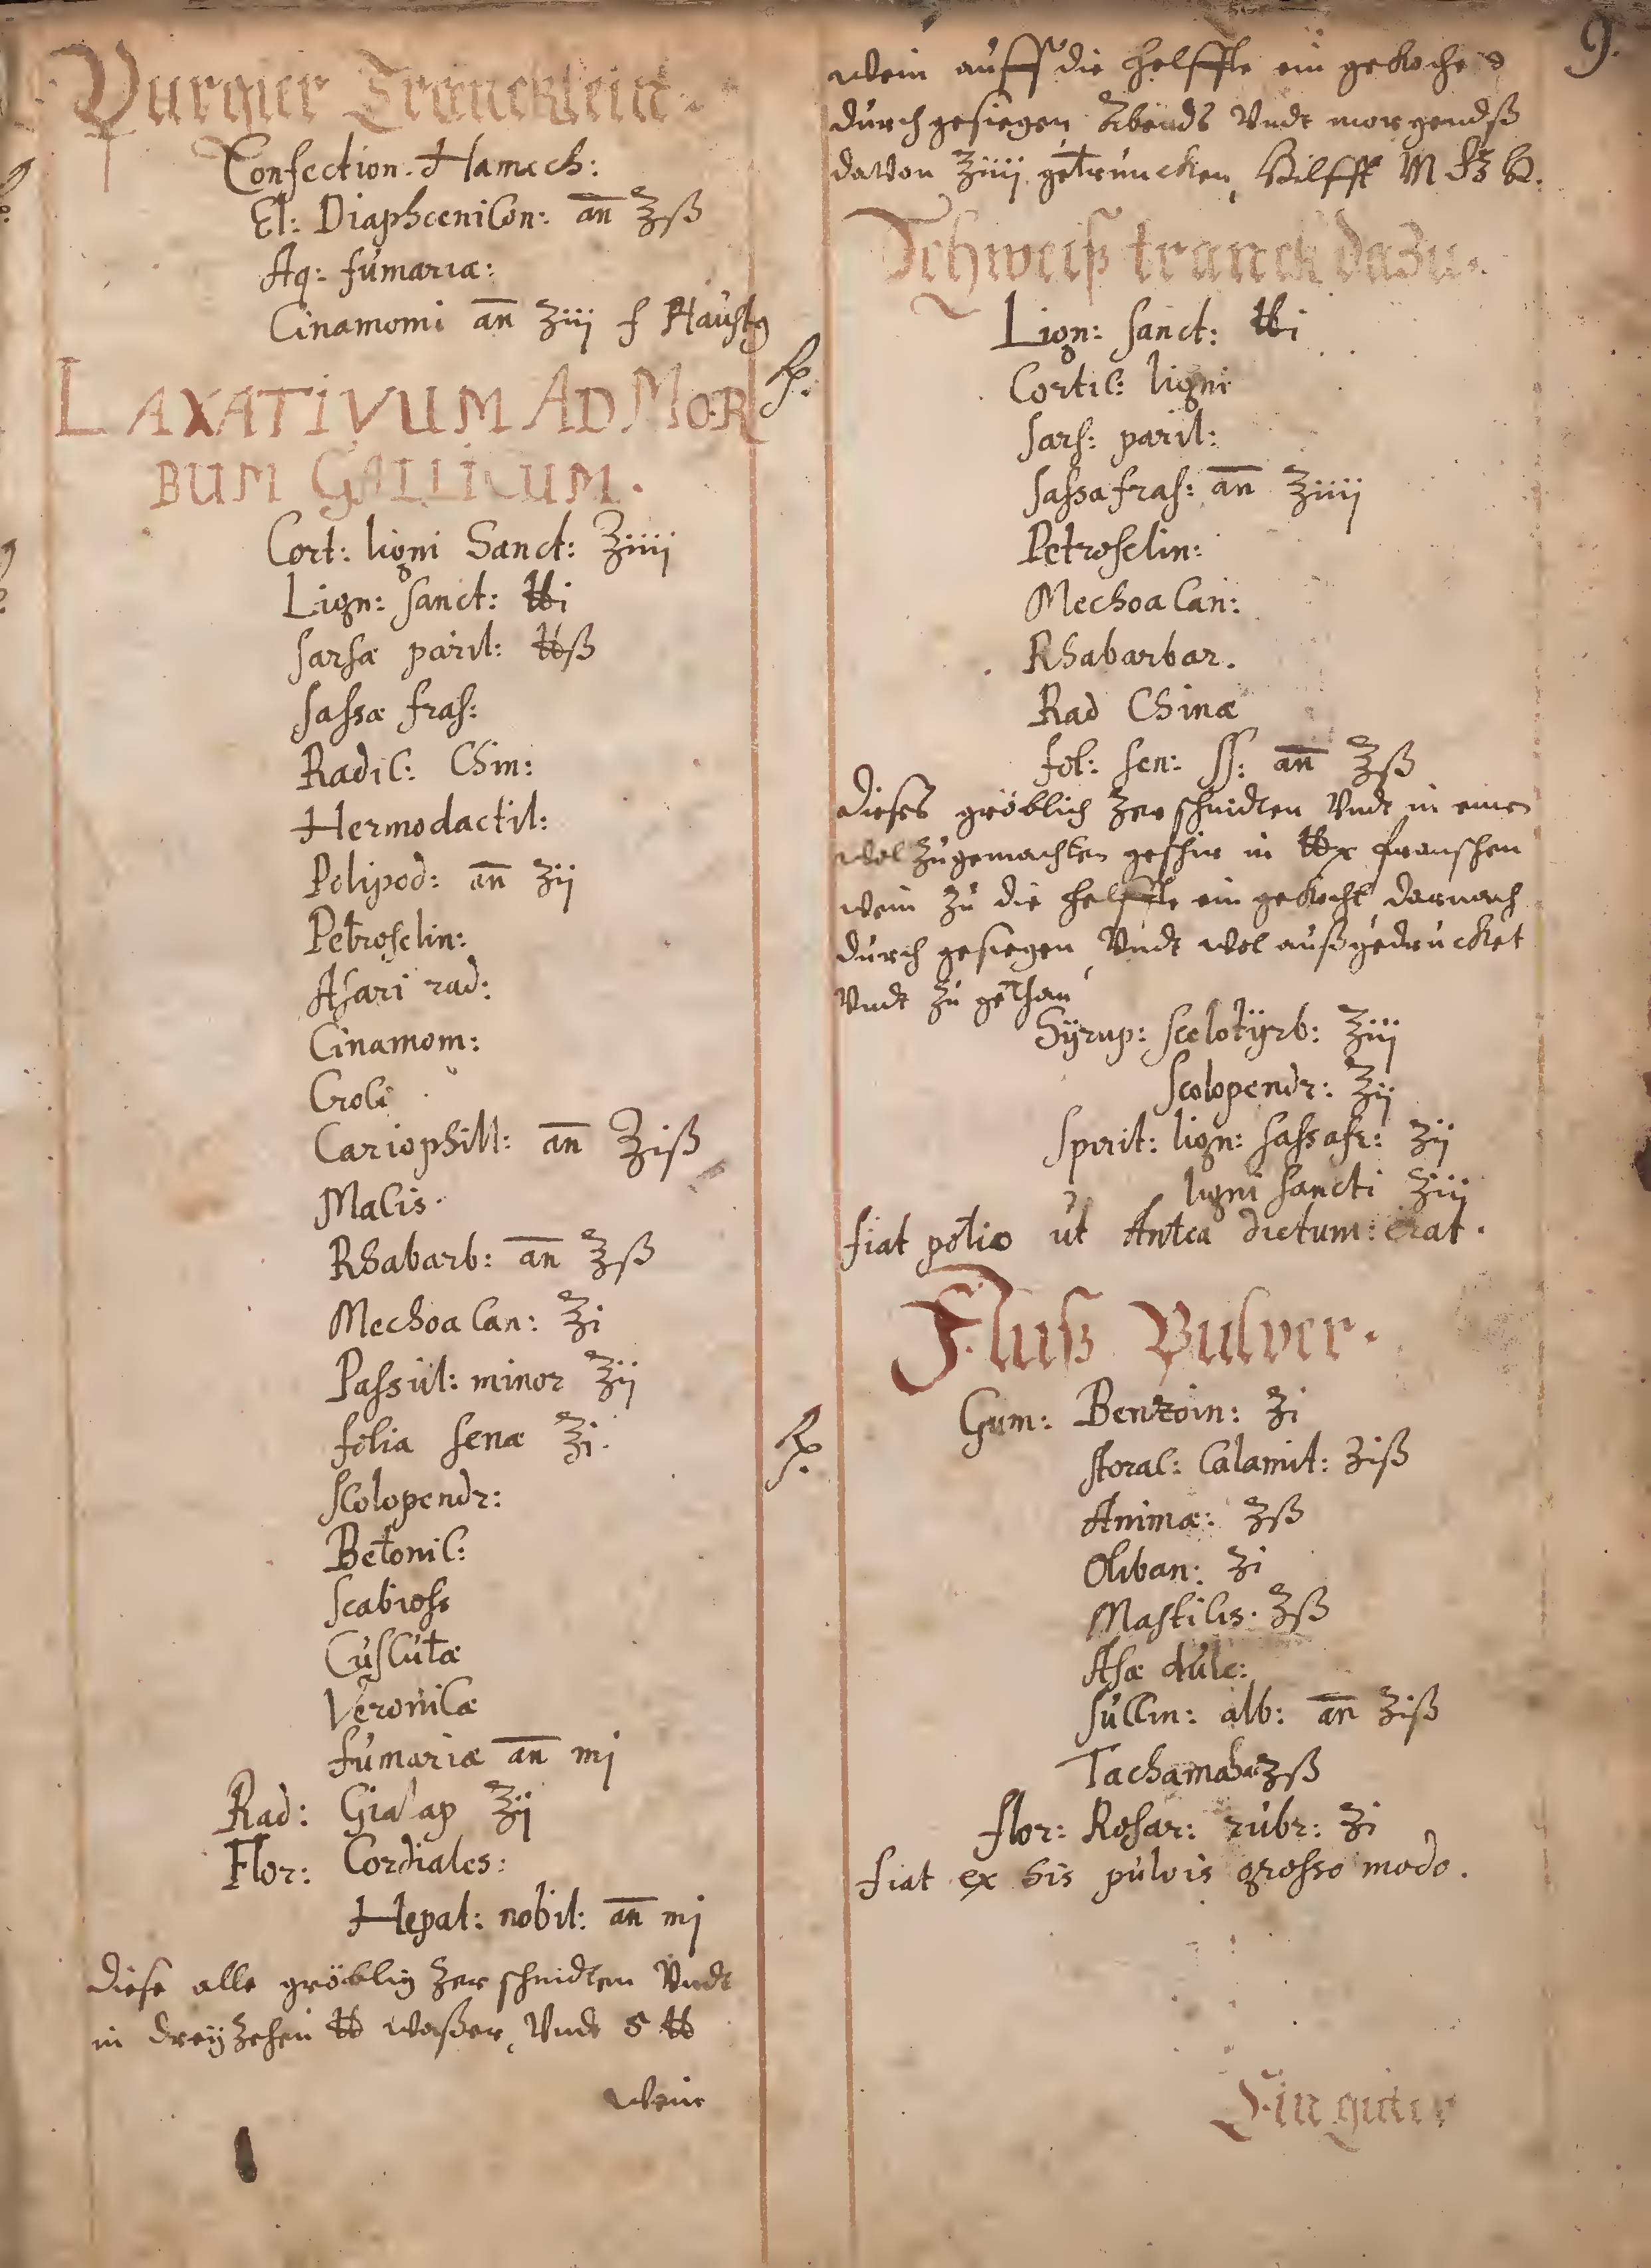 9.
Purgier Träncklein.
Confection. Hamech:
El: Diaphœnicon: an̄ ℥ß
Aq: fúmariæ:
Cinamomi an̄ ʒiij f Haústg
LAXATIVUM AD MOR
BUM GALLICUM.
Cort: ligni Sanct: ℥iiij
Lign: sanct: ℔i
sarsæ paril: ℔ß
sassæ fras:
Radic: Chin:
Hermodactil:
Polipod: an̄ ʒij
Petroselin:
Asari rad:
Cinamom:
Croci
Cariophill: an̄ ℥iß
Macis.
Rhabarb: an̄ ℥ß
Mechoacan: ℥i
Passúl: minor ℥ij
folia senæ ℥i.
scolopendr:
Betonic:
scabioss
Cúscútæ
Veronicæ
fúmariæ an̄ mj
Rad: Gialap ℥ij
Flor: Cordiales:
Hepat: nobil: an̄ mj
Diese alle gröblig zer schnidten Vndt
in dreÿzehen ℔ waßer, Vndt 5 ℔
wein
wein aúff die helffte ein gekoches
dúrchgesiegen Abends Vndt morgendß
davon ℥iiij getrúncken, Hilfft
Schweiß tranck dazu.
℞.
Lign: sanct: ℔i
Cortic: ligni
sars: paril:
sassafras: an̄ ℥iiij
Petroselin:
Mechoacan:
Rhabarbar.
Rad Chinæ
fol: sen: ss: an̄ ℥ß
Dieses gröblich zer schnidten Vndt in einen
wol zúgemachten geschir in ℔x franschen
wein zú die helffte ein gekocht, darnach
dúrch gesiegen, Vndt wol aúßgedrúcket
Vndt zú gethan
Sÿrup: scelotÿrb: ℥iij
scolopendr: ℥ij
spirit: lign: sassafr: ʒij
ligni sancti ʒiij
fiat potio út Antea dictum: erat.
Fluß Pulver.
℞.
Gum: Benzoin: ʒi
storac: Calamit: ʒiß
Animæ: ʒß
Oliban: ʒi
Masticis. ʒß
Asæ dúlc:
súccin: alb: an̄ ʒiß
Tachamaha ʒß
flor: Rosar: rúbr: ʒi
fiat ex his púlvis grosso modo.
Ein guter